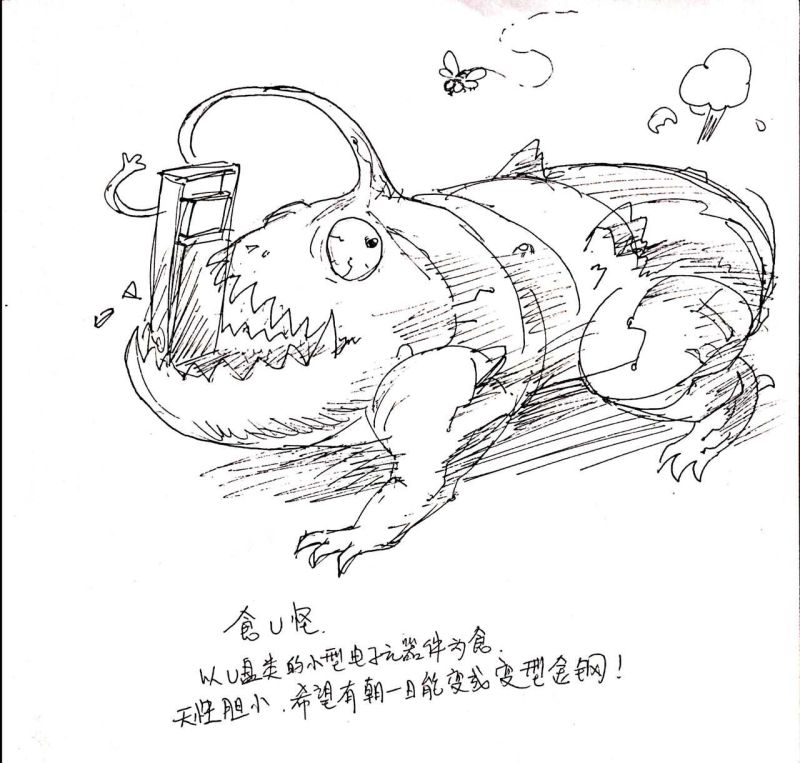 食U怪.
以U盘类的小型电子元器件为食.
天性胆小.希望有朝一日能变成变型金钢!